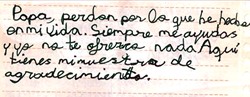 Papa, perdon por lo que he hecho
en mi vida. Siempre me ayudas
y yo no te ofrezco nada Aquí
tienes mi muestra de
agradecimiento.